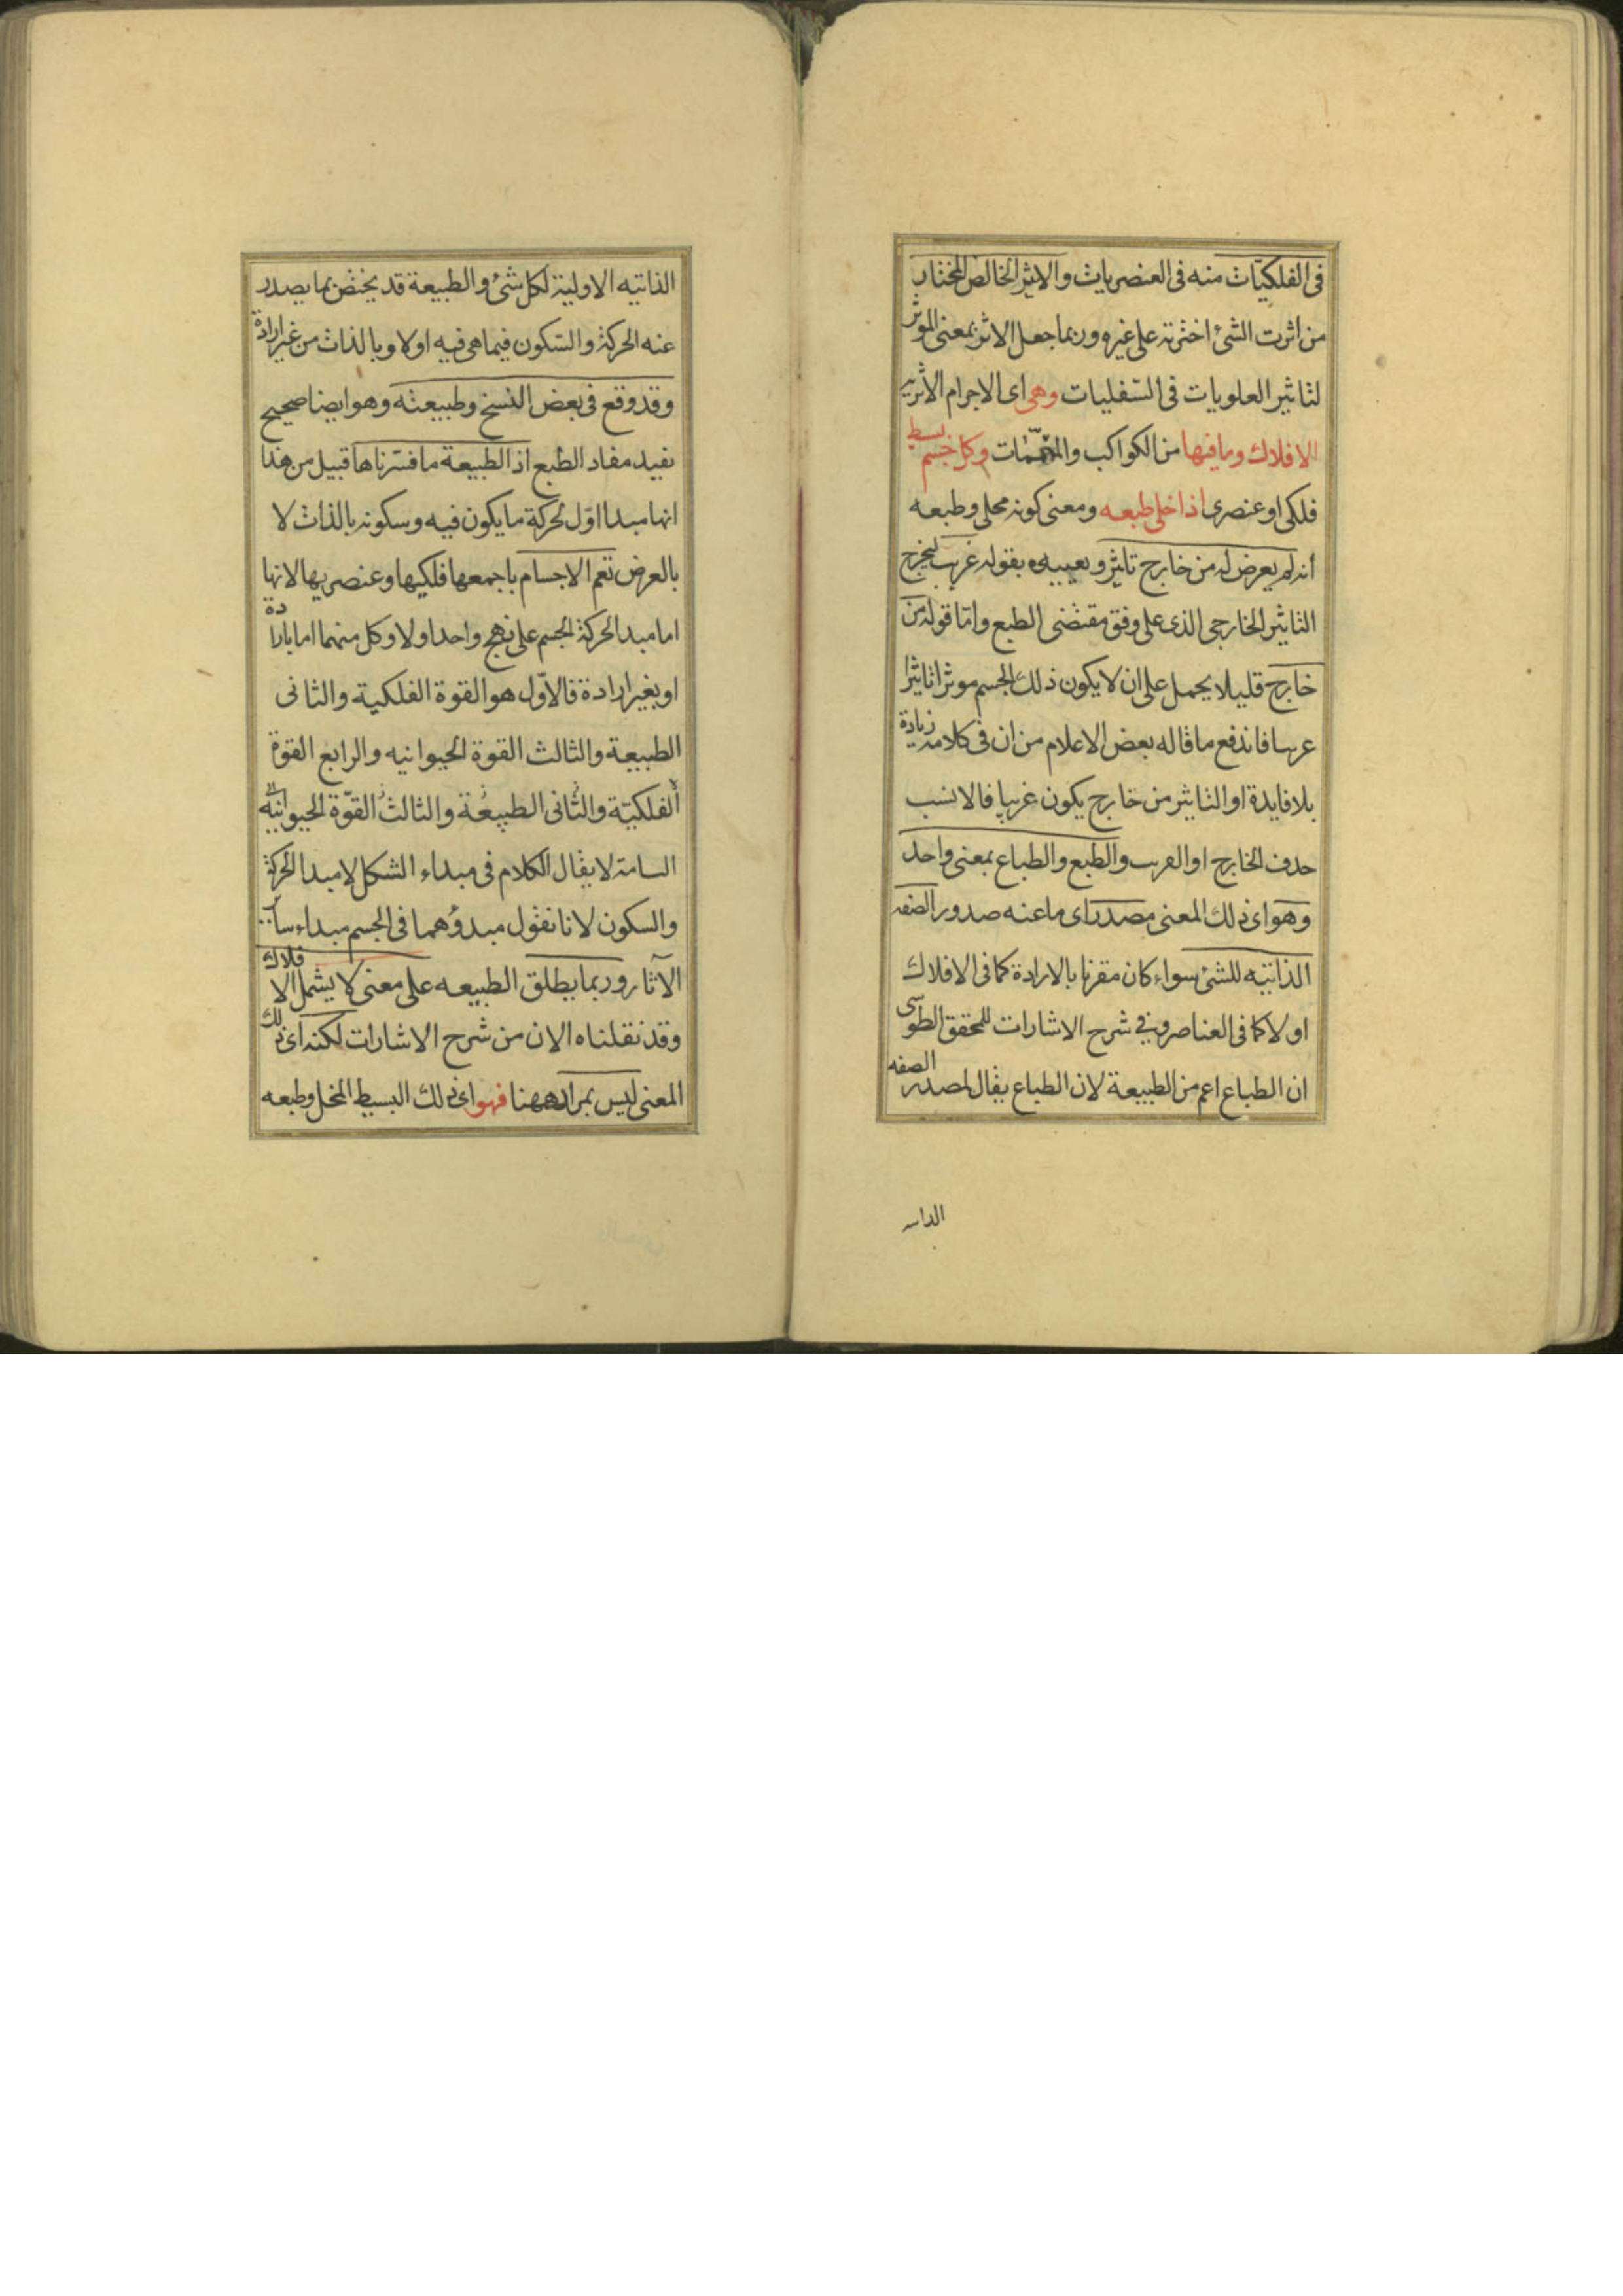 فى الفلكيّات منه فى العنصريات والاثير الخالص المختار
من اثرت الشئ اخترته على غيره وربما جعل الاثير بمعنى الموثر
لتاثير العلويات فى السّفليات وهى اى الاجرام الاثيريه
الافلاك وما فيها من الكواكب والمتممّات وكل جسم بسيط
فلكى او عنصرى اذا خلى طبعه ومعنى كونه مخلى وطبعه
أنه لم يعرض له من خارج تاثير و بقوله غريب ليخرج
التاثير الخارجى الذى على وفق مقتضى الطبع واما قوله من
خارج قليلا يحمل على ان لا يكون ذلك الجسم موثرا تاثيرا
غريبا فاندفع ما قاله بعض الاعلام من ان فى كلامه زيادة
بلا فايدة او التاثير من خارج يكون غريبا فالانسب
حذف الخارج او الغريب والطبع والطباع بمعنى واحد
وهو اى ذلك المعنى مصدر اى ما عنه صدور الصفه
الذاتيه للشئ سواء كان مقرنا بالارادة كما فى الافلاك
او لا كما فى العناصر وفى شرح الاشارات للمحقق الطوسى
ان الطباع اعم من الطبيعة لان الطباع يقال لمصدر الصفه
الذاتيه الاولية لكل شئ والطبيعة قد يختص بما يصدر
عنه الحركة والسّكون فيما هى فيه اولا وبالذات من غير ارادة
وقد وقع فى بعض النسخ وطبيعته وهو ايضا صحيح
يفيد مفاد الطبع اذ الطبيعة ما فسّرناها قبيل من هذا
انها مبدا اوّل لحركة ما يكون فيه وسكونه بالذات لا
بالعرض تعم الاجسام باجمعها فلكيها وعنصريها لانها
اما مبدا لحركة الجسم على نهج واحد اولا وكل منهما اما بارادة
او بغير ارادة فالاوّل هو القوة الفلكية والثانى
الطبيعة والثالث القوة الحيوانيه والرابع القوة
ألفلكيّة والثّانى الطبيعة والثالث القوّة الحيوانيّه
لا يقال الكلام فى مبداء الشكل لا مبدا الحركة
والسكون لانا نقول مبدؤهما فى الجسم مبداء
الآثار وربما يطلق الطبيعه على معنى لا يشمل الافلاك
وقد نقلناه الان من شرح الاشارات لكنه اى ذلك
المعنى ليس بمراد ههنا فهو اى ذلك البسيط المخلى وطبعه